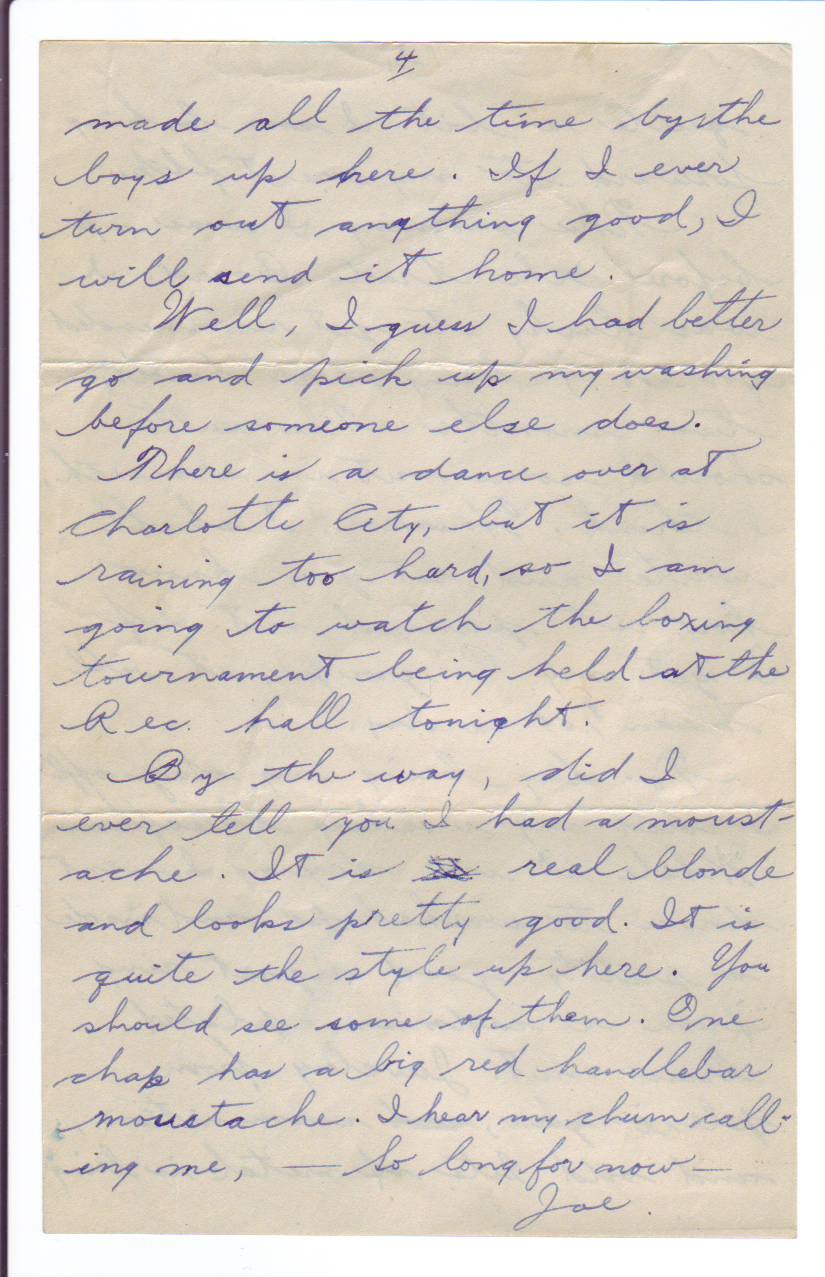 4
made all the time by the
boys up here. If I ever
turn out anything good, I
will send it home.
Well, I guess I had better
go and pick up my washing
before someone else does.
There is a dance over at
Charlotte City, but it is
raining too hard, so I am
going to watch the boxing
tournament being held at the
Rec. hall tonight.
By the way, did I
ever tell you I had a moust-
ache. It is real blonde
and looks pretty good. It is
quite the style up here. You
should see some of them. One
chap has a big red handlebar
moustache. I hear my chum call-
ing me, — So long for now —
Joe.